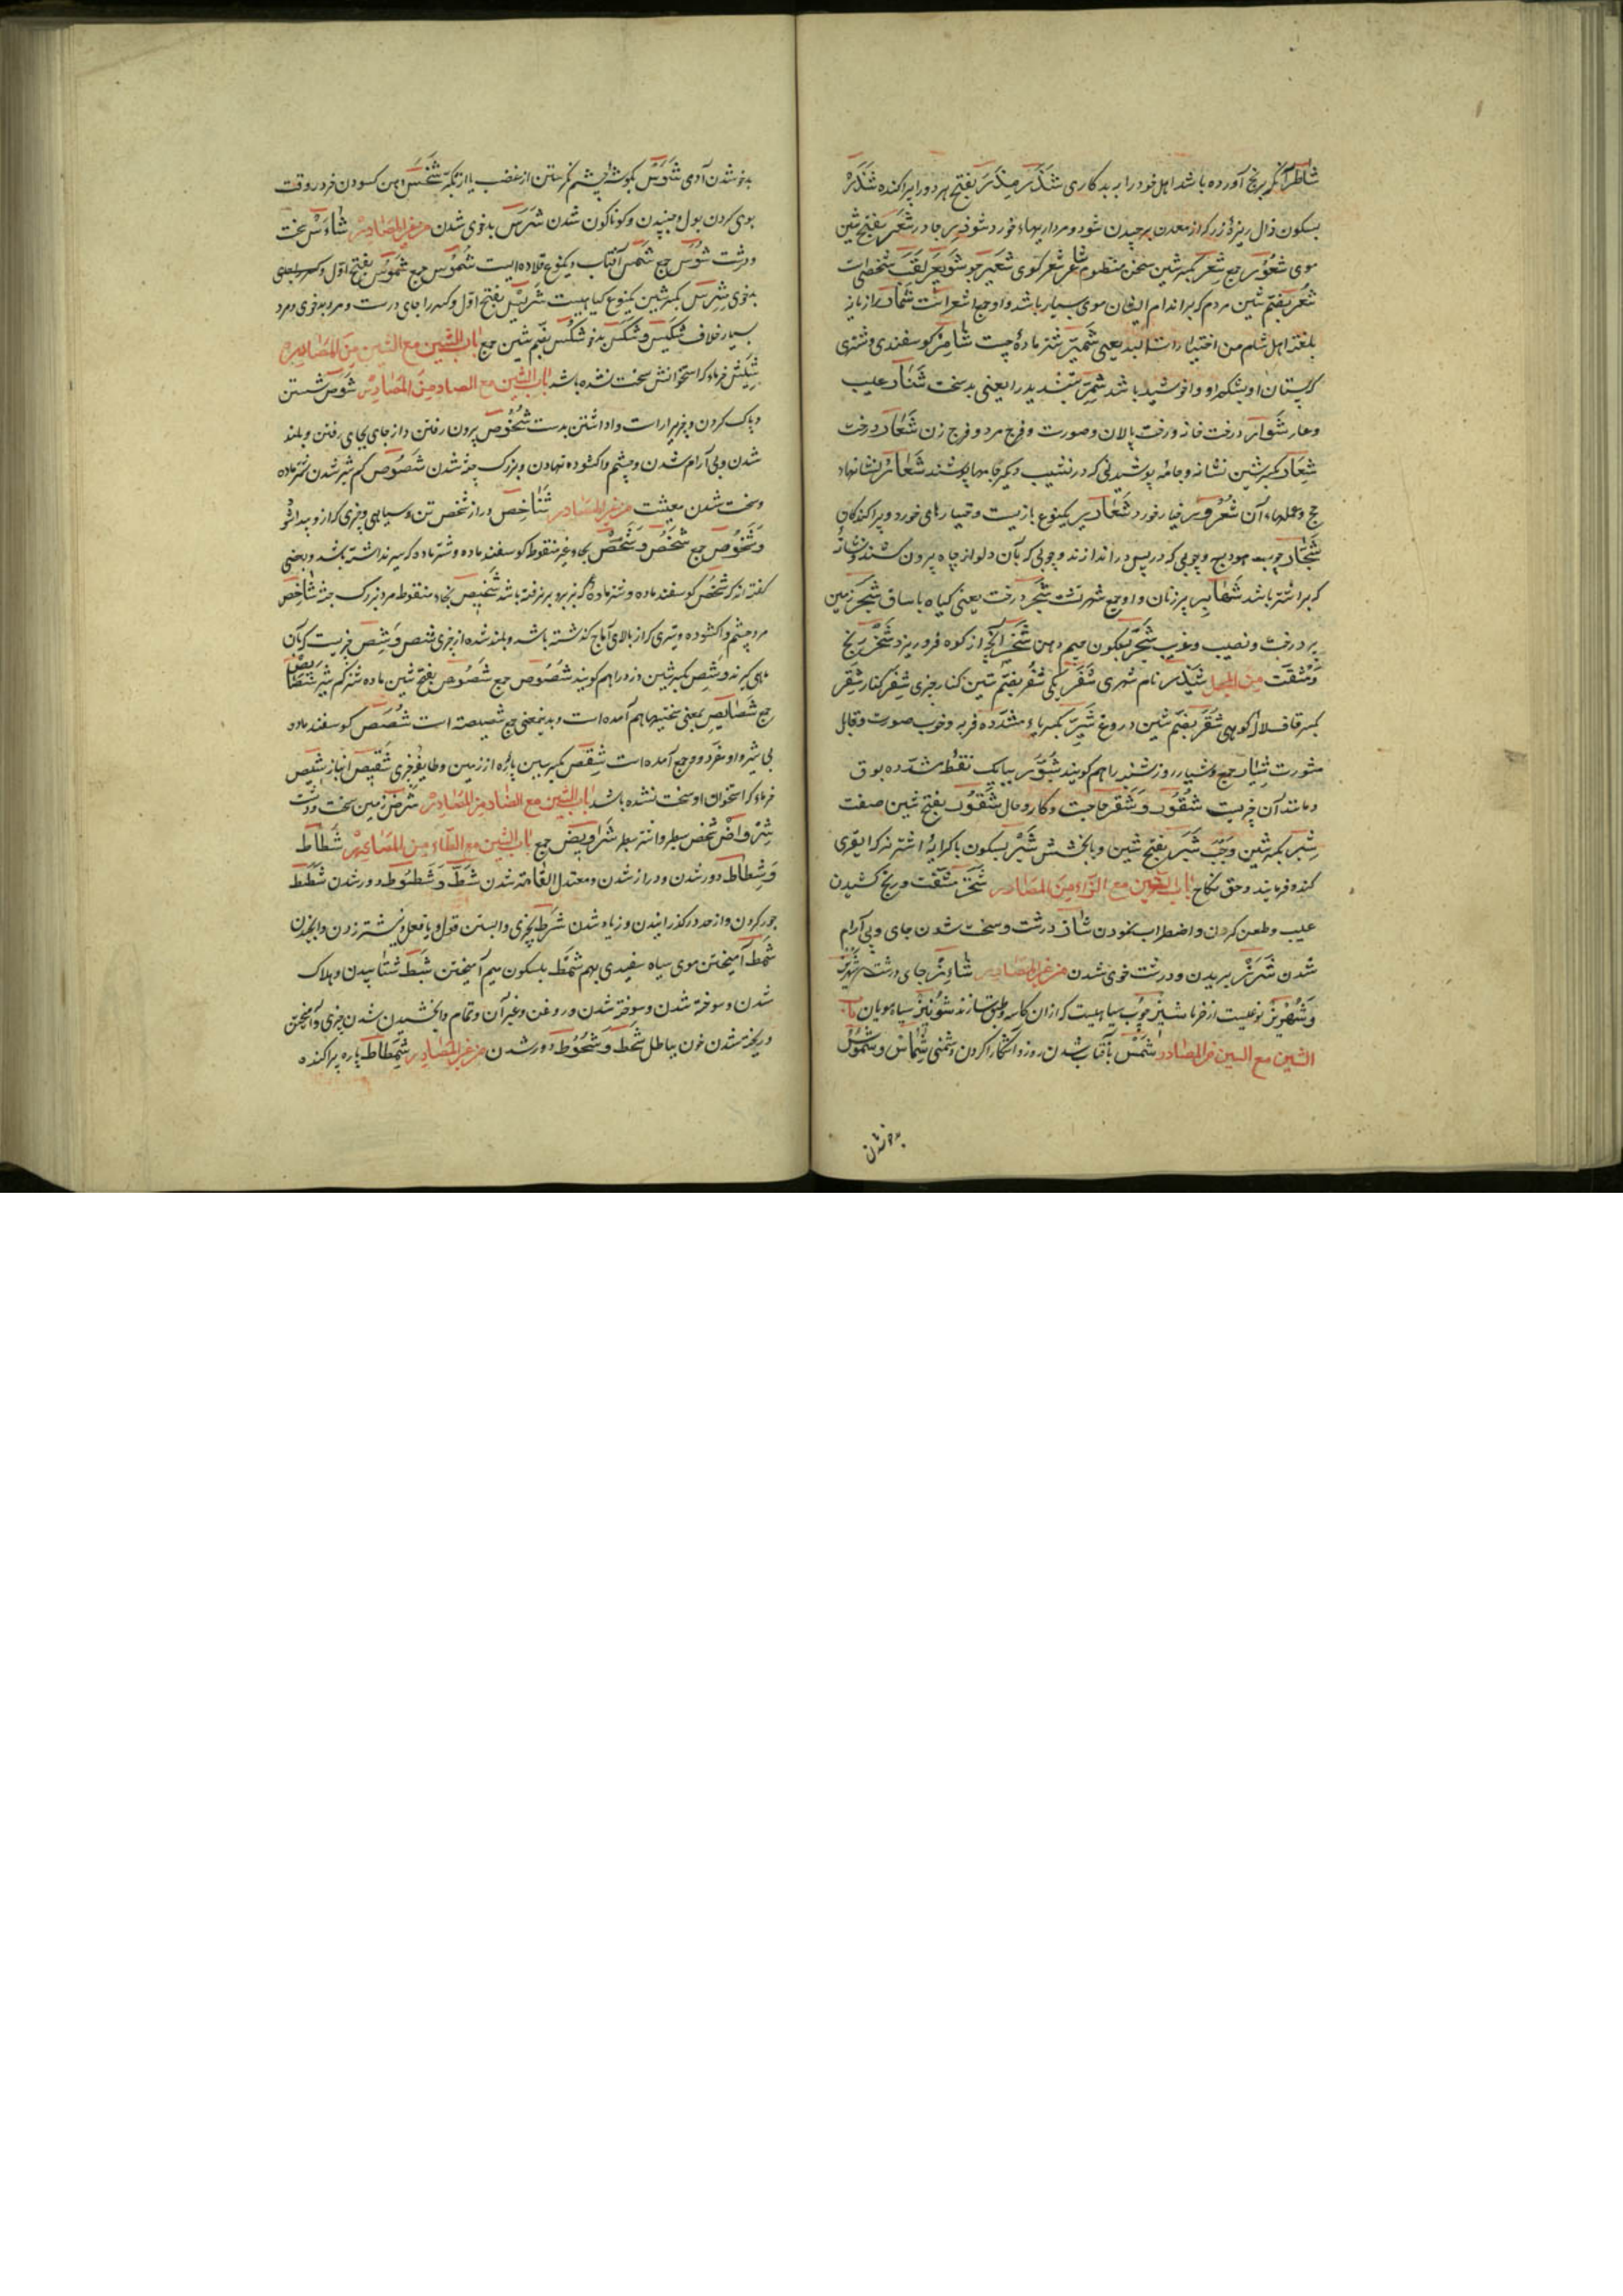 شاطر آنکه برنج آورده باشد اهل خود را ببدکاری شَذَرَ مِذَرَ بفتح هر دو را پراکنده شَذْر
بسکون ذال ریزهٔ زر که از معدن برچیدن شود و مرواریدهاء خورد شوذر چادر شَعر بفتح شین
موی شعور جمع شِعر بکسر شین سخن منظوم شاعر شعر کوی شعیر جو شویعر لقب شخصی است
شُعر بضم شین مردم که بر اندام ایشان موی بسیار باشد واوجمع اشعر است شمار رازیانه
بلغة اهل شام من اختیارات البدیعی شمیر شتر مادهٔ چست شامز کوسفندی و شتری
که پستان او بشکم او وا خوشیده باشد شمر بتشدید را یعنی بد سخت شنار عیب
وعار شوار درخت خانه ورخت پالان وصورت و فرج مرد و فرج زن شعار درخت
شِعار بکسر شین نشانه وجامهٔ پوشیدنی که در نشیب دیگر جامها پوشند شعائر نشانهاء
حج وعلمهاء آن شعرور خیار خورد شعاریر یکنوع بازیست وخیارهای خورد و پراکندکان
شجار چوب هودج و چوبی که در پس در اندازند و چوبی که بآن دلو از چاه بیرون کشند و نشانهٔ
که بر اشتر باشد شهابر پیرزنان واوجمع شهبرت شجر درخت یعنی کیاه با ساق شجر زمین
پر درخت و نصیب و غریب شجر بسکون جیم دهن شخیر آنچه از کوه فرو ریزد شخز رنج
ومشقت من المهمل شیذر نام شهری شفر یکی شفر بضم شین کنار چیزی شفیر کنار شقر
بکسر قاف لاله کوهی شقر بضم شین دروغ شیر بکسر یاء مشدده فربه و خوب صورت وقابل
مشورت شیار جمع وشیار روز شنبه را هم کویند شبور ببا یک نقطه مشدده بوق
ومانند آن چیزیست شقور وشقر حاجت وکار وحال شقور بفتح شین صفت
شبر بکسر شین وجب شبر بفتح شین و با بخشش شبر بسکون با کرایهٔ اشتر نر که ایغری
کند و فرمایند وحق نکاح باب الشین مع الزاء من المصادر شخز مشقت و رنج کشیدن
عیب وطعن کردن واضطراب نمودن شأز درشت وسخت شدن جای و بی آرام
شدن شرز بریدن ودرشت خوی شدن من غیر المصادر شاءز جای درشت شهریز
وشهریز نوعیست از خرما شیز چوب سیاهیست که از ان کاسه وطبق سازند شونیز سیاه مویان باب
الشین مع السین من المصادر شمس بآفتاب شدن روز و آشکارا کردن دشمنی شماس وشموس
بدخو شدن
بدخو شدن آدمی شوس بکوشهٔ چشم نکرستن از غضب یا از تکبر شخس دهن کشودن خر در وقت
بوی کردن بول و جنبیدن وکوناکون شدن شرس بدخوی شدن من غیر المصادر شأس سخت
ودرشت شوس جمع شمس آفتاب ویکنوع قلاده ایست شموس جمع شموس بفتح اول
بدخوی شرس بکسر شین یکنوع کیاهیست شریس بفتح اول وکسر را جای درشت ومرد بدخوی ومرد
بسیار خلاف شکیس وشکس بدخو شکس بضم شین جمع باب الشین مع الشین من المصادر
شیش خرماء که استخوانش سخت نشده باشد باب الشین مع الصاد من المصادر شوص شستن
وپاک کردن وچیز براراست واداشتن بدست شخوص بیرون رفتن واز جای بجای رفتن وبلند
شدن وبی آرام شدن وچشم واکشوده نهادن وبزرک جثه شدن شصوص کم شیر شدن شتر ماده
وسخت شدن معیشت من غیر المصادر شاخص دراز شخص تن وسیاهی چیزی که از دور پیدا شود
وشخوص جمع شخص وشحص بحاء غیر منقوط کوسفند ماده وشتر ماده که شیر نداشته باشد وبعضی
کفته اند که شخص کوسفند ماده و شتر ماده که نر برو بر نرفته باشد شخیص بخاء منقوط مرد بزرک جثه شاخص
مرد چشم واکشوده وتیری که از بالای آماج کذشته باشد وبلند شده از چیزی شص وشص چیزیست که بآن
ماهی کیرند وشص بکسر شین دزد را هم کویند شصوص جمع شصوص بفتح شین ماده شتر کم شیر شصائص
جمع شصایص بمعنی سختیها هم آمده است وبدینمعنی جمع شصیصة است شصص کوسفند ماده
بی شیر واو مفرد و جمع آمده است شقص بکسر شین پاره از زمین وطایفهٔ چیزی شقیص انباز شیص
خرماء که استخوان او سخت نشده باشد باب الشین مع الضاد من المصادر شرض زمین سخت ودرشت
شرواض شخص سطبر واشتر سطبر شراویض جمع باب الشین مع الطاء من المصادر شطاط
وشطاط دور شدن ودراز شدن ومعتدل القامة شدن شط وشطوط دور شدن شطط
جور کردن واز حد در کذرانیدن وزیاده شدن شرط بچیزی وابستن قول ویا فعل ونیشتر زدن
شمط آمیختن موی سیاه سفیدی بهم شمط بسکون میم آمیختن شیط شتابیدن وهلاک
شدن وسوخته شدن وسوخته شدن در روغن وغیر آن وتمام وابخشیدن شدن چیزی وآمیختن
وریخته شدن خون بباطل شحط وشحوط دور شدن من غیر المصادر شمطاط پاره پراکنده